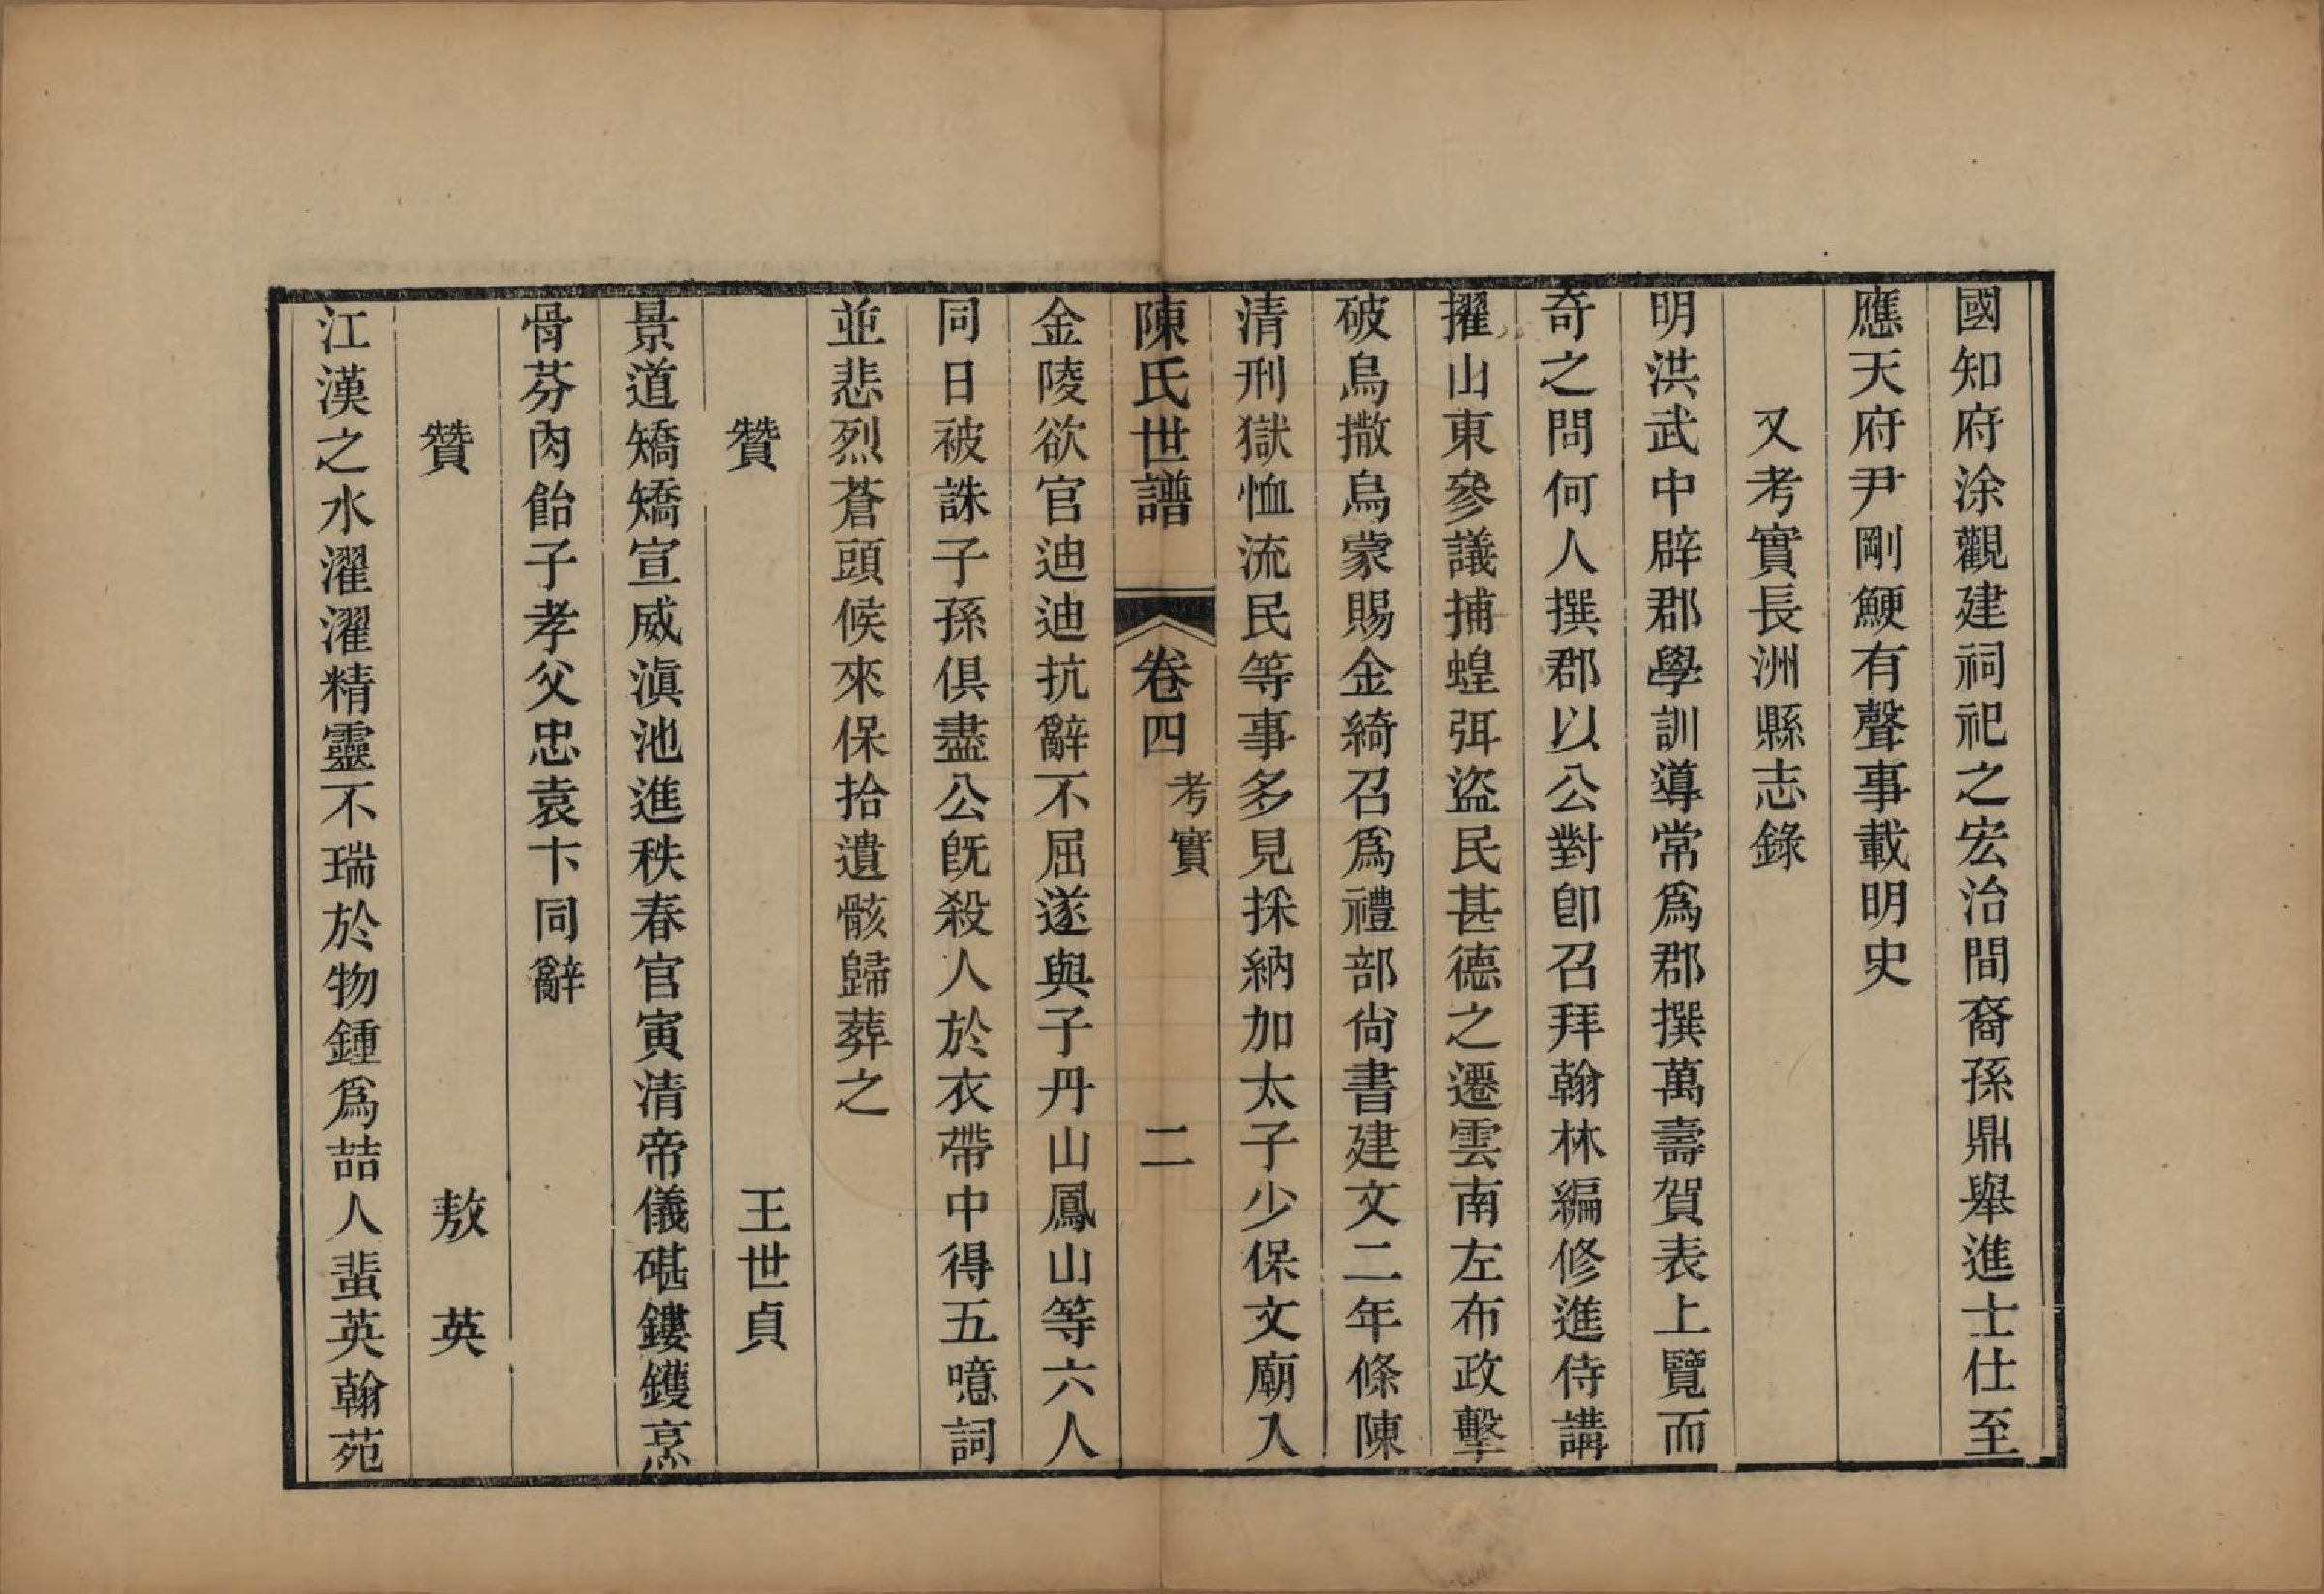 國知府涂觀建祠祀之宏治間裔孫鼎舉進士仕至
應天府尹剛鯁有聲事載明史
又考實長洲縣志錄
明洪武中辟郡學訓導常爲郡撰萬壽賀表上覽而
奇之問何人撰郡以公對卽召拜翰林編修進侍講
擢山東參議捕蝗弭盜民甚德之遷雲南左布政擊
破烏撒烏蒙賜金綺召爲禮部尙書建文二年條陳
清刑獄恤流民等事多見採納加太子少保文廟入
陳氏世譜 卷四 考實 二
金陵欲官迪迪抗辭不屈遂與子丹山鳳山等六人
同日被誅子孫俱盡公旣殺人於衣帶中得五噫詞
並悲烈蒼頭候來保拾遺骸歸葬之
贊 王世貞
景道矯矯宣威滇池進秩春官寅清帝儀碪鏤鑊烹
骨芬肉飴子孝父忠袁卞同辭
贊 敖英
江漢之水濯濯精靈不瑞於物鍾爲喆人蜚英翰苑